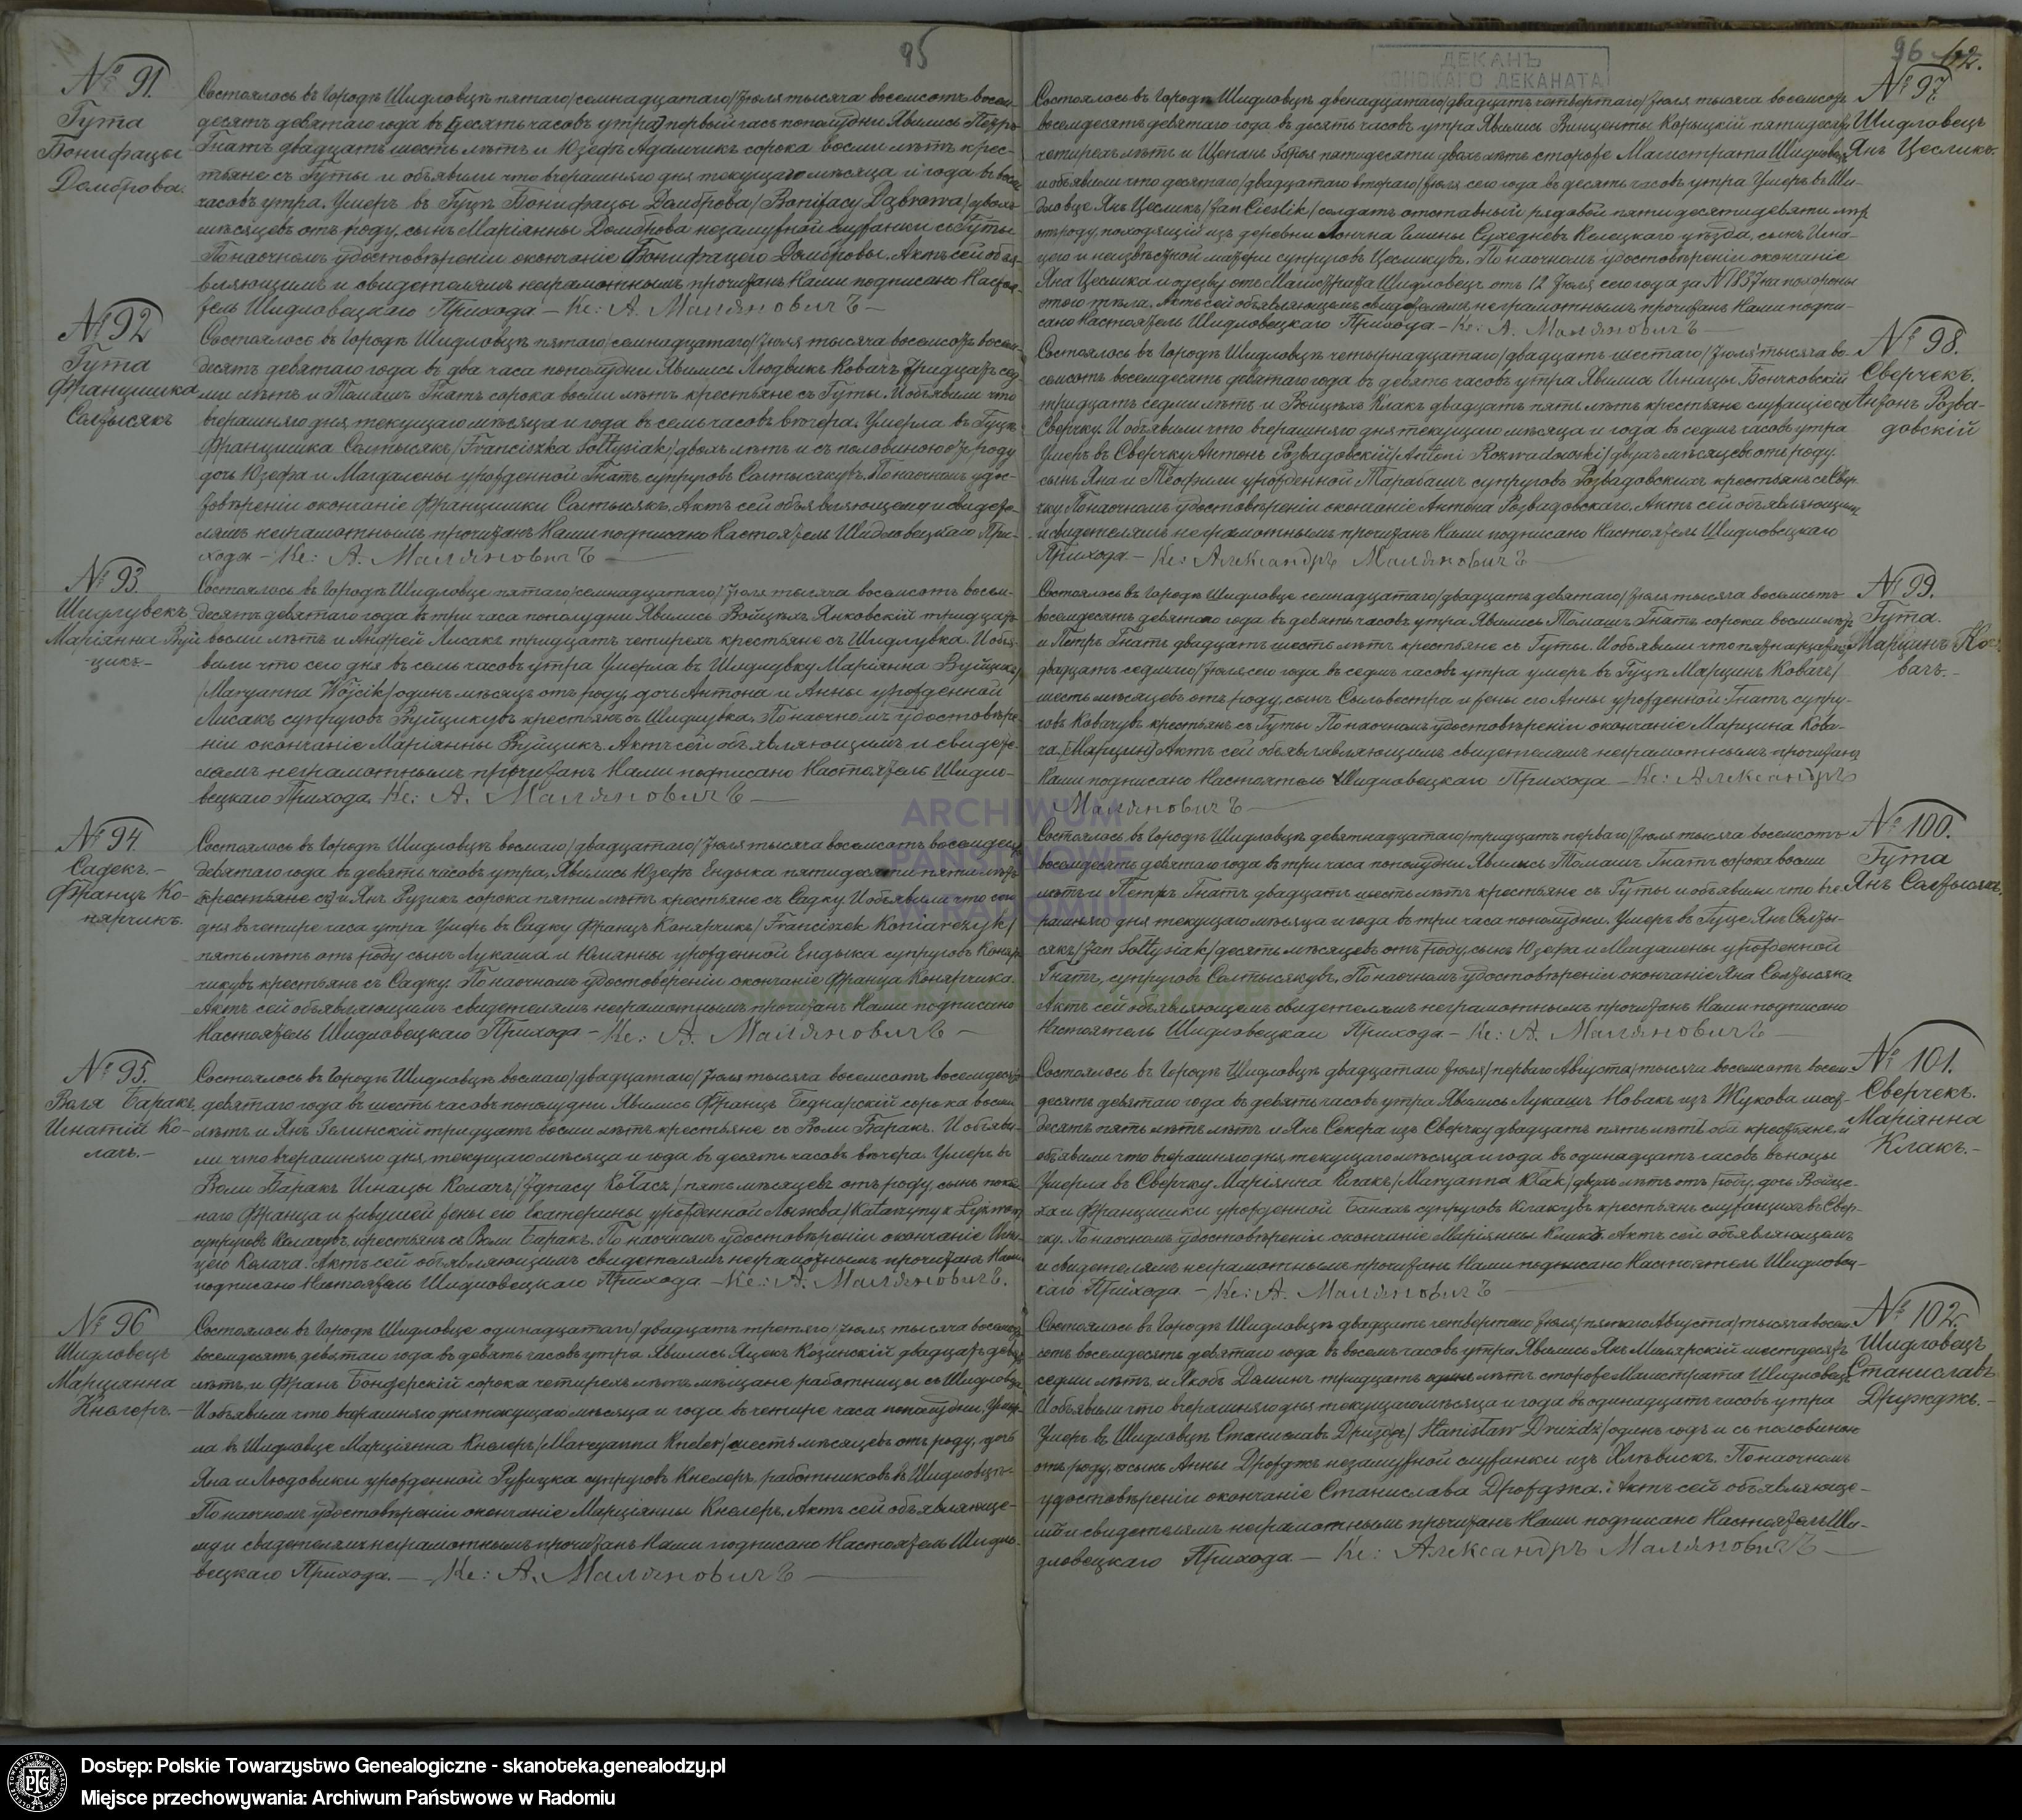 95
№ 91.
Гута
Бонифацы
Домброва.
Состоялось въ Городѣ Шидловцѣ пятаго/семнадцатаго/Іюля тысяча восемсотъ восем-
десятъ девятаго года въ [десять часовъ утра] первый часъ пополудни Явились Петръ
Гнатъ двадцать шесть лѣтъ и Юзефъ Адамчикъ сорока восми лѣтъ крес-
тьяне съ Гуты и объявили что вчерашняго дня текущаго мѣсяца и года въ
часовъ утра. Умеръ въ Гуцѣ Бонифацы Домброва/Bonifacy Dąbrowa/двохъ
мѣсяцевъ отъ роду, сынъ Маріянны Домброва незамужной служанки съ Гуты.
По наочномъ удостовѣреніи окончаніе Бонифацего Домбровы. Актъ сей объя-
вляющимъ и свидетелямъ неграмотнымъ прочитанъ Нами подписано Настоя-
тель Шидловецкаго Прихода — Кс: А. Маляновичъ —
№ 92
Гута
Францишка
Солтысякъ
Состоялось въ Городѣ Шидловцѣ пятаго/семнадцатаго/Іюля тысяча восемсотъ восем-
десятъ девятаго года въ два часа пополудни Явились Людвикъ Ковачъ тридцать сед-
ми лѣтъ и Томашъ Гнатъ сорока восми лѣтъ крестьяне съ Гуты. И объявили что
вчерашняго дня текущаго мѣсяца и года въ семь часовъ вечера. Умерла въ Гуцѣ
Францишка Солтысякъ/Franciszka Sołtysiak/двохъ лѣтъ и съ половиною отъ роду
дочь Юзефа и Магдалены урожденной Гнатъ супруговъ Солтысякувъ. По наочномъ удос-
товѣреніи окончаніе Францишки Солтысякъ. Актъ сей объявляющему и свидете-
лямъ неграмотнымъ прочитанъ Нами подписано Настоятель Шидловецкаго При-
хода — Кс: А. Маляновичъ —
№ 93
Шидлувекъ
Маріянна Вуй
-цикъ-
Состоялось въ Городѣ Шидловце пятаго/семнадцатаго/Іюля тысяча восемсотъ восем-
десятъ девятаго года въ три часа пополудни Явились Войцехъ Янковскій тридцать
восми лѣтъ и Андрей Лисакъ тридцать четирехъ крестьяне съ Шидлувка. И объя-
вили что сего дня въ семь часовъ утра Умерла въ Шидлувку Маріянна Вуйцикъ
/Maryanna Wójcik/одинъ мѣсяцъ отъ роду, дочь Антона и Анны урожденной
Лисакъ супруговъ Вуйцикувъ крестьянъ съ Шидлувка. По наочномъ удостовѣре-
ніи окончаніе Маріянны Вуйцикъ. Актъ сей объявляющимъ и свидете-
лямъ неграмотнымъ прочитанъ Нами подписано Настоятель Шидло-
вецкаго Прихода. Кс: А. Маляновичъ —
№ 94.
Садекъ.-
Францъ Ко-
нярчикъ.
Состоялось въ Городѣ Шидловцѣ восмаго/двадцатаго/Іюля тысяча восемсотъ восемдесятъ
девятаго года въ девять часовъ утра, Явились Юзефъ Ендыка пятидесяти пяти лѣтъ
[крестьяне съ] и Янъ Рузикъ сорока пяти лѣтъ крестьяне съ Садку И объявили что сего
дня въ четире часа утра Умеръ въ Садку Францъ Конярчикъ/Franciszek Koniarczyk/
пять лѣтъ отъ роду сынъ Лукаша и Юлianны урожденной Ендыка супруговъ Коняр-
чикувъ крестьянъ съ Садку. По наочномъ удостовѣреніи окончаніе Франца Конярчика.
Актъ сей объявляющимъ свидетелямъ неграмотнымъ прочитанъ Нами подписано
Настоятель Шидловецкаго Прихода — Кс: А. Маляновичъ —
№ 95.
Воля Баракъ.
Игнатій Ко-
лачъ.-
Состоялось въ Городѣ Шидловцѣ восмаго/двадцатаго/Іюля тысяча восемсотъ восемдесятъ
девятаго года въ шесть часовъ пополудни Явились Францъ Беднарскій сорока восми
лѣтъ и Янъ Зелинскій тридцать восми лѣтъ крестьяне съ Воли Баракъ. И объяви-
ли что вчерашняго дня, текущаго мѣсяца и года въ десять часовъ вечера Умеръ въ
Воли Баракъ Игнацы Колачъ/Ignacy Kołacz/пять мѣсяцевъ отъ роду, сынъ покой-
наго Франца и живущей жены его Екатерины урожденной Лыжва/Katarzyny z Łyżwow/
супруговъ Колачувъ, крестьянъ съ Воли Баракъ. По наочномъ удостовѣреніи окончаніе Игна-
цего Колача. Актъ сей объявляющимъ свидетелямъ неграмотнымъ прочитанъ Нами
подписано Настоятель Шидловецкаго Прихода — Кс: А. Маляновичъ.
№ 96
Шидловецъ
Марціянна
Кнелеръ.-
Состоялось въ Городѣ Шидловце одинадцатаго/двадцать третяго/Іюля тысяча восемсотъ
восемдесятъ девятаго года въ девять часовъ утра Явились Яцекъ Козинскій двадцать девять
лѣтъ, и Франъ Бондерскій сорока четирехъ лѣтъ мѣщане работницы съ Шидловца
И объявили что вчерашняго дня текущаго мѣсяца и года въ четире часа пополудни, Умер-
ла въ Шидловце Марціянна Кнелеръ/Marcyanna Kneler/шесть мѣсяцевъ отъ роду, дочь
Яна и Людовики урожденной Ружицка супруговъ Кнелеръ, работниковъ въ Шидловцѣ.
По наочномъ удостовѣреніи окончаніе Марціянны Кнелеръ. Актъ сей объявляюще-
му и свидетелямъ неграмотнымъ прочитанъ Нами подписано Настоятель Шидло-
вецкаго Прихода. — Кс: А. Маляновичъ —
ДЕКАНЪ
КОНСКАГО ДЕКАНАТА
96
102.
№ 97.
Шидловецъ
Янъ Цесликъ.
Состоялось въ Городѣ Шидловцѣ двенадцатаго/двадцать четвертаго/Іюля тысяча восемсотъ
восемдесятъ девятаго года въ десять часовъ утра Явились Винценты Корыцкій пятидесяти
четирехъ лѣтъ и Щепанъ Зброя пятидесяти двохъ лѣтъ стороже Магистрата Шидловецъ
и объявили что десятаго/двадцатаго втораго/Іюля сего года въ десять часовъ утра Умеръ въ Ши-
дловце Янъ Цесликъ/Jan Cieślik/солдатъ отставный рядовой пятидесяти девяти лѣтъ
отъ роду, походящій изъ деревни Лончна Гмины Сухедневъ Келецкаго уѣзда, сынъ Игна-
цего и неизвѣстной матери супруговъ Цесликувъ. По наочномъ удостовѣреніи окончаніе
Яна Цеслика и отзеву отъ Магистрата Шидловецъ отъ 12 Іюля сего года за N 1837 на похороны
этого тѣла, Актъ сей объявляющемъ свидетелямъ неграмотнымъ прочитанъ Нами подпи-
сано Настоятель Шидловецкаго Прихода — Кс: А. Маляновичъ —
№ 98.
Сверчекъ.
Антонъ Розва-
довскій
Состоялось въ Городѣ Шидловцѣ четырнадцатаго/двадцать шестаго/Іюля тысяча во-
семсотъ восемдесятъ девятаго года въ девять часовъ утра Явились Игнацы Бончковскій
тридцать седми лѣтъ и Войцехъ Клакъ двадцать пяти лѣтъ крестьяне служащіе съ
Сверчку. И объявили что вчерашняго дня текущаго мѣсяца и года въ седмь часовъ утра
умеръ въ Сверчку Антонъ Розвадовскій/Antoni Rozwadowski/двухъ мѣсяцевъ отъ роду.
сынъ Яна и Теофили урожденной Тарабашъ супруговъ Розвадовскихъ крестьянъ съ Свер-
чку. По наочномъ удостовѣреніи окончаніе Антона Розвадовскаго, Актъ сей объявляющимъ
и свидетелямъ неграмотнымъ прочитанъ Нами подписано Настоятель Шидловецкаго
Прихода — Кс: Александръ Маляновичъ —
№ 99.
Гута.
Марцинъ Ко-
вачъ.-
Состоялось въ Городѣ Шидловце семнадцатаго/двадцать девятаго/Іюля тысяча восемсотъ
восемдесятъ девятаго года въ девять часовъ утра Явились Томашъ Гнатъ сорока восми лѣтъ
и Петръ Гнатъ двадцать шесть лѣтъ крестьяне съ Гуты. И объявили что пятнадцатаго
двадцать седмаго/Іюля сего года въ седмь часовъ утра умеръ въ Гуцѣ Марцинъ Ковачъ/
шесть мѣсяцевъ отъ роду, сынъ Сильвестра и жены его Анны урожденной Гнатъ супру-
говъ Ковачувъ крестьянъ съ Гуты. По наочномъ удостовѣреніи окончаніе Марцина Кова-
ча. [Марцин] Актъ сей объявлявляющимъ свидетелямъ неграмотнымъ прочитанъ
Нами подписано Настоятель Шидловецкаго Прихода — Кс: Александръ
Маляновичъ —
№ 100.
Гута
Янъ Солтысякъ.
Состоялось въ Городѣ Шидловцѣ девятнадцатаго/тридцать перваго/Іюля тысяча восемсотъ
восемдесятъ девятаго года въ три часа пополудни Явились Томашъ Гнатъ сорока восми
лѣтъ и Петръ Гнатъ двадцать шесть лѣтъ крестьяне съ Гуты и объявили что вче-
рашняго дня текущаго мѣсяца и года въ три часа пополудни. Умеръ въ Гуце Янъ Солты-
сякъ/Jan Sołtysiak/десять мѣсяцевъ отъ роду, сынъ Юзефа и Магдалены урожденной
Гнатъ, супруговъ Солтысякувъ. По наочномъ удостовѣреніи окончаніе Яна Солтысяка
Актъ сей объявляющемъ свидетелямъ неграмотнымъ прочитанъ Нами подписано
Настоятель Шидловецкаго Прихода — Кс: А. Маляновичъ —
№ 101.
Сверчекъ.
Маріянна
Клакъ.-
Состоялось въ Городѣ Шидловцѣ двадцатаго Іюля/перваго Августа/тысяча восемсотъ восем-
десятъ девятаго года въ девять часовъ утра Явились Лукашъ Новакъ изъ Жукова шест-
десятъ пять лѣтъ лѣтъ и Янъ Секера изъ Сверчку двадцать пять лѣтъ оба крестьяне, и
объявили что вчерашняго дня, текущаго мѣсяца и года въ одинадцать часовъ въ ноцы
Умерла въ Сверчку Маріянна Клакъ/Maryanna Kłak/двухъ лѣтъ отъ роду, дочь Войце-
ха и Францишки урожденной Банахъ супруговъ Клакувъ крестьянъ служащихъ въ Свер-
чку. По наочномъ удостовѣреніи окончаніе Маріянны Клакъ. Актъ сей объявляющемъ
и свидетелямъ неграмотнымъ прочитанъ Нами подписано Настоятель Шидловец-
каго Прихода — Кс: А. Маляновичъ —
№ 102.
Шидловецъ
Станиславъ
Дружджъ.-
Состоялось въ Городѣ Шидловцѣ двадцать четвертаго Іюля/пятаго Августа/тысяча восем-
сотъ восемдесятъ девятаго года въ восемь часовъ утра Явились Янъ Малярскій шестдесятъ
седми лѣтъ, и Якобъ Доминъ тридцать одинъ лѣтъ стороже Магистрата Шидловецъ
И объявили что вчерашняго дня текущаго мѣсяца и года въ одинадцать часовъ утра
Умеръ въ Шидловцѣ Станиславъ Дружджъ/Stanisław Drużdż/одинъ годъ и съ половиною
отъ роду, сынъ Анны Дрожджъ незамужной служанки изъ Хлѣвискъ. По наочномъ
удостовѣреніи окончаніе Станислава Дрожджа. Актъ сей объявляюще-
мъ и свидетелямъ неграмотнымъ прочитанъ Нами подписано Настоятель Ши-
дловецкаго Прихода — Кс: Александръ Маляновичъ —
ARCHIWUM
PAŃSTWOWE
W RADOMIU
Dostęp: Polskie Towarzystwo Genealogiczne - skanoteka.genealodzy.pl
Miejsce przechowywania: Archiwum Państwowe w Radomiu